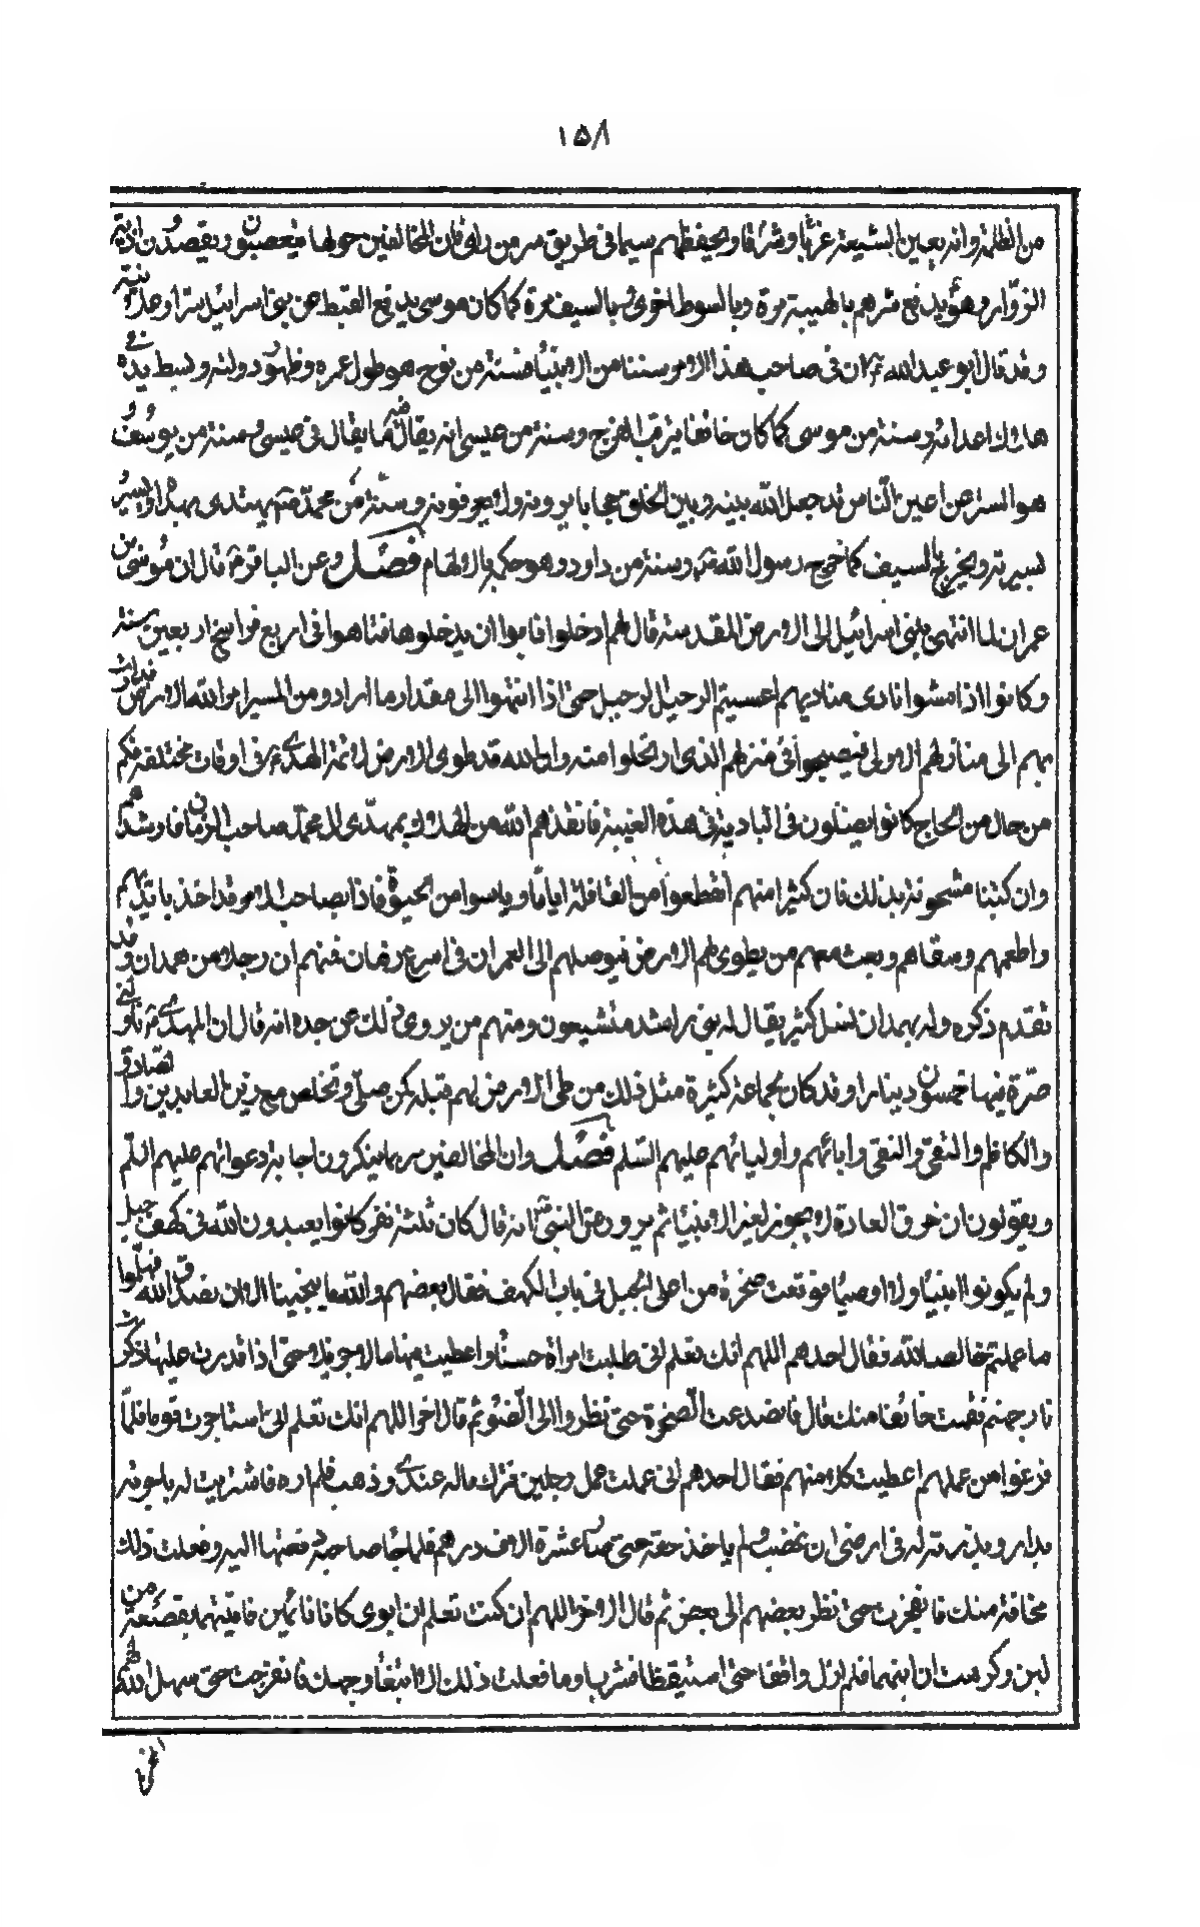 ١٥٨
من الظلمة وانه يعين الشيعة غربا وشرقا ويحفظهم سيما في طريق سر من راى فان المخالفين حولها متعصبون ويقصدون اذية
الزوار وهو يدفع شرهم بالهيبة مرة وبالسوط اخرى وبالسيف مرة كما كان موسى يدفع القبط عن بني اسرائيل سرا وحده
وقد قال ابو عبد الله ع ان في صاحب هذا الامر سننا من الانبياء فسنة من نوح هو طول عمره وظهور دولته وبسط يده في
هلاك اعدائه وسنة من موسى كما كان خائفا يترقب الفرج وسنة من عيسى انه يقال فيه ما يقال في عيسى وسنة من يوسف
هو الستر عن اعين الناس قد جعل الله بينه وبين الخلق حجابا يرونه ولا يعرفونه وسنة من محمد ص يهتدى بهداه ويسير
بسيرته ويخرج بالسيف كما خرج رسول الله ص وسنة من داود وهو حكمه بالالهام فصل وعن الباقر ع قال ان موسى بن
عمران لما انتهى ببني اسرائيل الى الارض المقدسة قال لهم ادخلوا فابوا ان يدخلوها فتاهوا في اربع فراسخ اربعين سنة
وكانوا اذا امشوا نادى مناديهم امسيتم الرحيل الرحيل حتى اذا انتهوا الى مقدار ما ارادوا من المسير امر الله الارض فدارت
بهم الى منازلهم الاولى فيصبحوا في منزلهم الذي ارتحلوا منه وان الله قد طوى الارض لائمة الهدى ع في اوقات مختلفة فكم
من حال من الحاج كانوا يضلون في البادية في هذه الغيبة فانقذهم الله من الهلاك بمهدى آل محمد صاحب الزمان فارشدهم
وان كتبنا مشحونة بذلك فان كثيرا منهم انقطعوا من القافلة اياما ويايسوا من الحيوة فاذا بصاحب الامر قد اخذ بايديهم
واطعمهم وسقاهم وبعث معهم من يطوى لهم الارض فيوصلهم الى العمران في اسرع زمان فمنهم ان رجلا من همدان وقد
تقدم ذكره وله بهمدان نسل كثير يقال له بنى راشد متشيعون ومنهم من يروى ذلك عن جده انه قال ان المهدى ع ناولني
صرة فيها خمسون دينارا وقد كان لجماعة كثيرة مثل ذلك من طى الارض لهم قبله كمن صلى وتخلص مع زين العابدين والصادق
والكاظم والتقى والنقى وابائهم واوليائهم عليهم السلم فصل وان المخالفين ربما ينكرون اجابة دعواتهم عليهم السلم
ويقولون ان خرق العادة لا يجوز لغير الانبياء ثم يروون عن النبي ص انه قال كان ثلثة نفر كانوا يعبدون الله في كهف جبل
ولم يكونوا انبياء ولا اوصياء فوقعت صخرة من اعلى الجبل في باب الكهف فقال بعضهم والله ما ينجينا الا ان نصدق الله فهلموا
ما عملتم خالصا لله فقال احدهم اللهم انك تعلم اني طلبت امراة حسناء واعطيت فيها مالا جزيلا حتى اذا قدرت عليها ذكرت
نار جهنم فقمت خائفا منك قال فانصدعت الصخرة حتى نظروا الى الضوء ثم قال اخر اللهم انك تعلم اني استاجرت قوما فلما
فرغوا من عملهم اعطيت كلا منهم فقال احدهم اني عملت عمل رجلين فترك ماله عندى وذهب فلم اره فاشتريت له باجرته
بذارا وبذرته له في ارضى ان نهضب لم ياخذ حقه حتى صار عشرة الاف درهم فلما جاء صاحبه دفعتها اليه وفعلت ذلك
مخافة منك فانفرجت حتى نظر بعضهم الى بعض ثم قال الاخر اللهم ان كنت تعلم ان ابوى كانا نائمين فاتيتهما بقصعة من
لبن وكرهت ان انبههما فلم ازل واقفا حتى استيقظا فشربا وما فعلت ذلك الا ابتغاء وجهك فانفرجت حتى سهل الله لهم